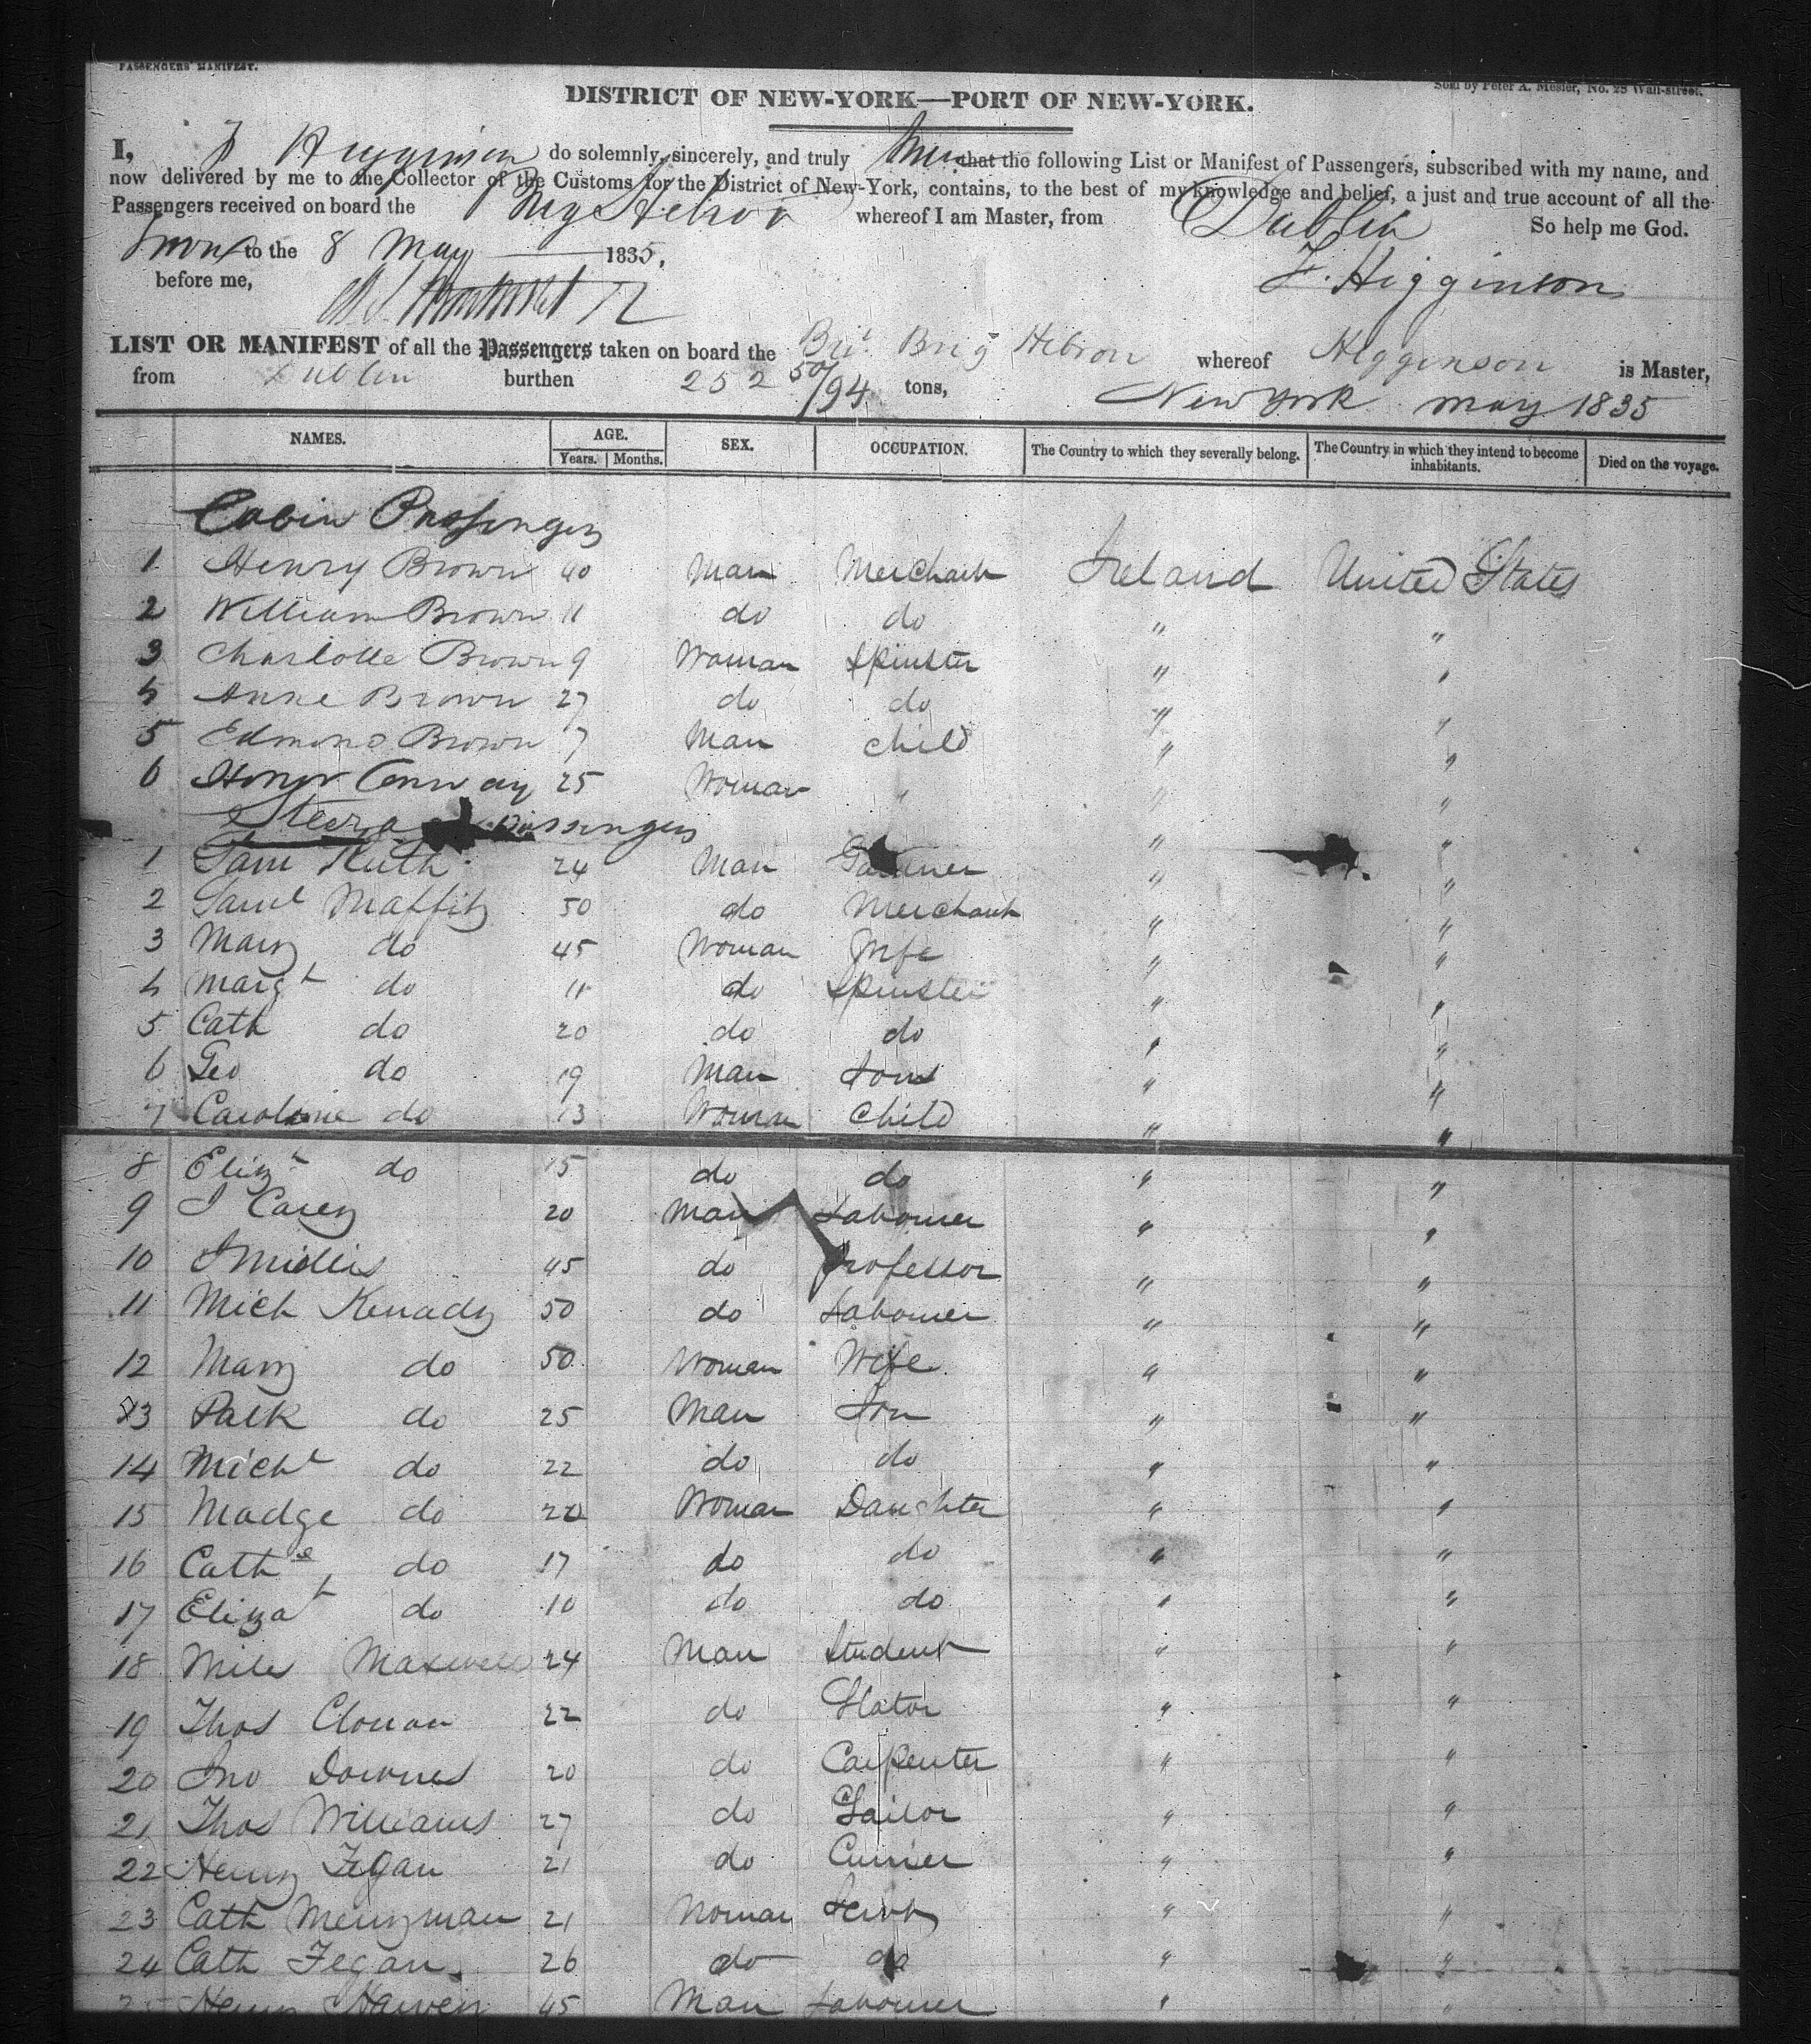 PASSENGERS' MANIFEST.
Sold by Peter A. Mesier, No. 28 Wall-street.
DISTRICT OF NEW-YORK—PORT OF NEW-YORK.
I, J Higginson do solemnly, sincerely, and truly that the following List or Manifest of Passengers, subscribed with my name, and
now delivered by me to the Collector of the Customs for the District of New-York, contains, to the best of my knowledge and belief, a just and true account of all the
Passengers received on board the Brig Hebron whereof I am Master, from Dublin So help me God.
Sworn to the 8 May 1835,
J. Higginson
before me,
LIST OR MANIFEST of all the Passengers taken on board the Brit Brig Hebron whereof Higginson is Master,
from Dublin burthen 252 50/94 tons, New York May 1835
NAMES. AGE. SEX. OCCUPATION. The Country to which they severally belong. The Country in which they intend to become inhabitants. Died on the voyage.
Years. Months.
Cabin Passengers
1 Henry Brown 40 Man Merchant Ireland United States
2 William Brown 11 do do " "
3 Charlotte Brown 9 Woman Spinster " "
4 Anne Brown 27 do do " "
5 Edmond Brown 7 Man Child " "
6 Honor Conway 25 Woman " " "
Steerage Passengers " "
1 Sam 24 Man " "
2 Saml Maffitt 50 do Merchant " "
3 Mary do 45 Woman Wife " "
4 Margt do 11 do Spinster " "
5 Cath do 20 do do " "
6 Geo do 19 Man Son " "
7 Caroline do 13 Woman Child " "
8 Elizt do 15 do do " "
9 J Carey 20 Man Labourer " "
10 45 do Professor " "
11 Mich Kenady 50 do Labourer " "
12 Mary do 50 Woman Wife " "
13 Patk do 25 Man Son " "
14 Michl do 22 do do " "
15 Madge do 20 Woman Daughter " "
16 Cathe do 17 do do " "
17 Elizat do 10 do do " "
18 Miles Maxwell 24 Man Student " "
19 Thos Clonan 22 do Slator " "
20 Jno Downes 20 do Carpenter " "
21 Thos Williams 27 do Tailor " "
22 Henry Fegan 21 do Currier " "
23 Cath Merryman 21 Woman Servt " "
24 Cath Fegan 26 do do " "
25 Henry 45 Man Labourer " "